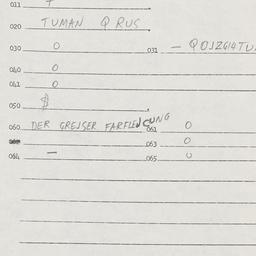 011 T
020 TUMAN Q RUS
030 0 031 — Q01Z614TU
040 0
041 0
050 $
060 DER GREJSER FARFLEJCUNG 061 0
063 0
064 — 065 0